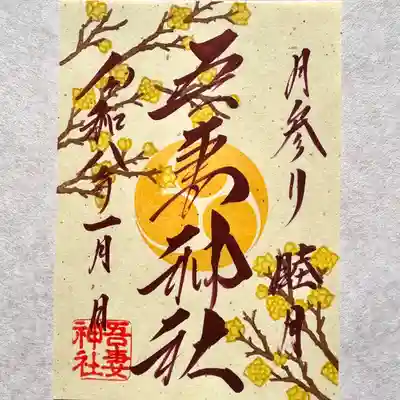 月参り 睦月
吾妻神社
令和八年一月一日
吾妻
神社